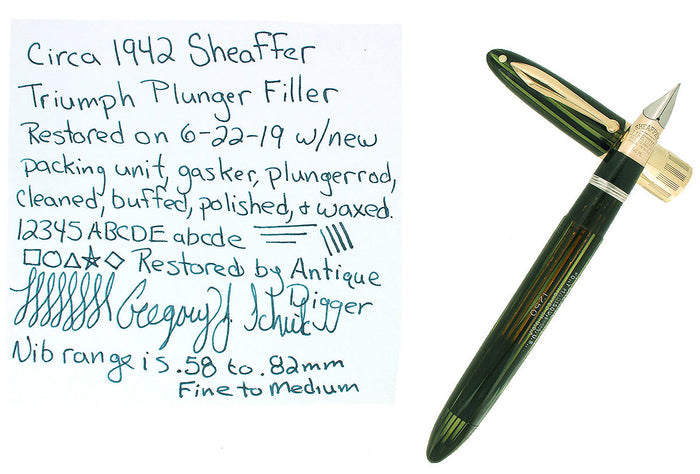 Circa 1942 Sheaffer
Triumph Plunger Filler
Restored on 6-22-19 w/new
packing unit, gasker, plungerrod,
cleaned, buffed, polished, & waxed.
12345 ABCDE abcde
Restored by Antique
Digger
Gregory J.
Nib range is .58 to .82mm
Fine to Medium
SHEAFFER'S
1250